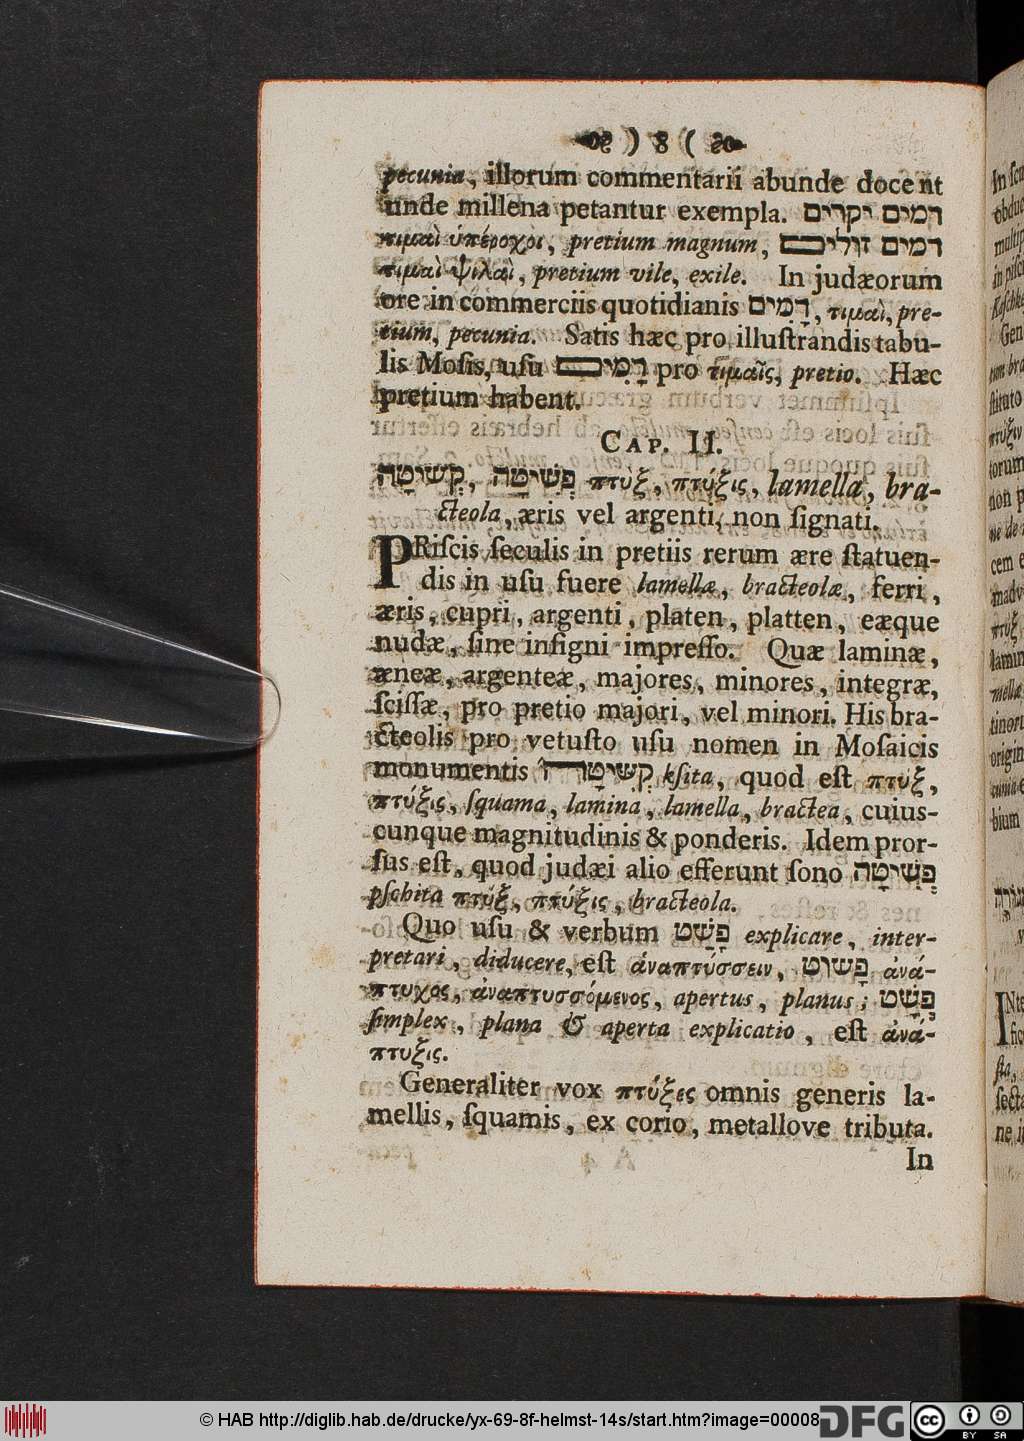 ) 8 (
pecunia, illorum commentarii abunde docent
unde millena petantur exempla. דמים יקרים
τιμαὶ ὑπέροχοι, pretium magnum, דמים זולים
τιμαὶ ψιλαὶ, pretium vile, exile. In judæorum
ore in commerciis quotidianis דָמִים, τιμαὶ, pre-
tium, pecunia. Satis hæc pro illuſtrandis tabu-
lis Moſis, uſu דָמִים pro τιμαῖς, pretio. Hæc
pretium habent.
CAP. II.
קְשִׂיטָה, פְּשִׁיטָה πτὺξ, πτύξις, lamella, bra-
cteola, æris vel argenti, non ſignati.
PRiſcis ſeculis in pretiis rerum ære ſtatuen-
dis in uſu fuere lamellæ, bracteolæ, ferri,
æris, cupri, argenti, platen, platten, eæque
nudæ, ſine inſigni impreſſo. Quæ laminæ,
æneæ, argenteæ, majores, minores, integræ,
ſciſſæ, pro pretio majori, vel minori. His bra-
cteolis pro vetuſto uſu nomen in Moſaicis
monumentis קְשִׂיטָה kſita, quod eſt πτυξ,
πτύξις, ſquama, lamina, lamella, bractea, cuius-
cunque magnitudinis & ponderis. Idem pror-
ſus eſt, quod judæi alio efferunt ſono פְּשִׁיטָה
pſchita πτύξ, πτύξις, bracteola.
Quo uſu & verbum פָּשַׁט explicare, inter-
pretari, diducere, eſt ἀναπτύσσειν, פָּשׁוּט ἀνά-
πτυχος, ἀναπτυσσόμενος, apertus, planus; פְּשָׁט
ſimplex, plana & aperta explicatio, eſt ἀνά-
πτυξις.
Generaliter vox πτύξες omnis generis la-
mellis, ſquamis, ex corio, metallove tributa.
In
© HAB http://diglib.hab.de/drucke/yx-69-8f-helmst-14s/start.htm?image=00008
DFG
cc BY SA